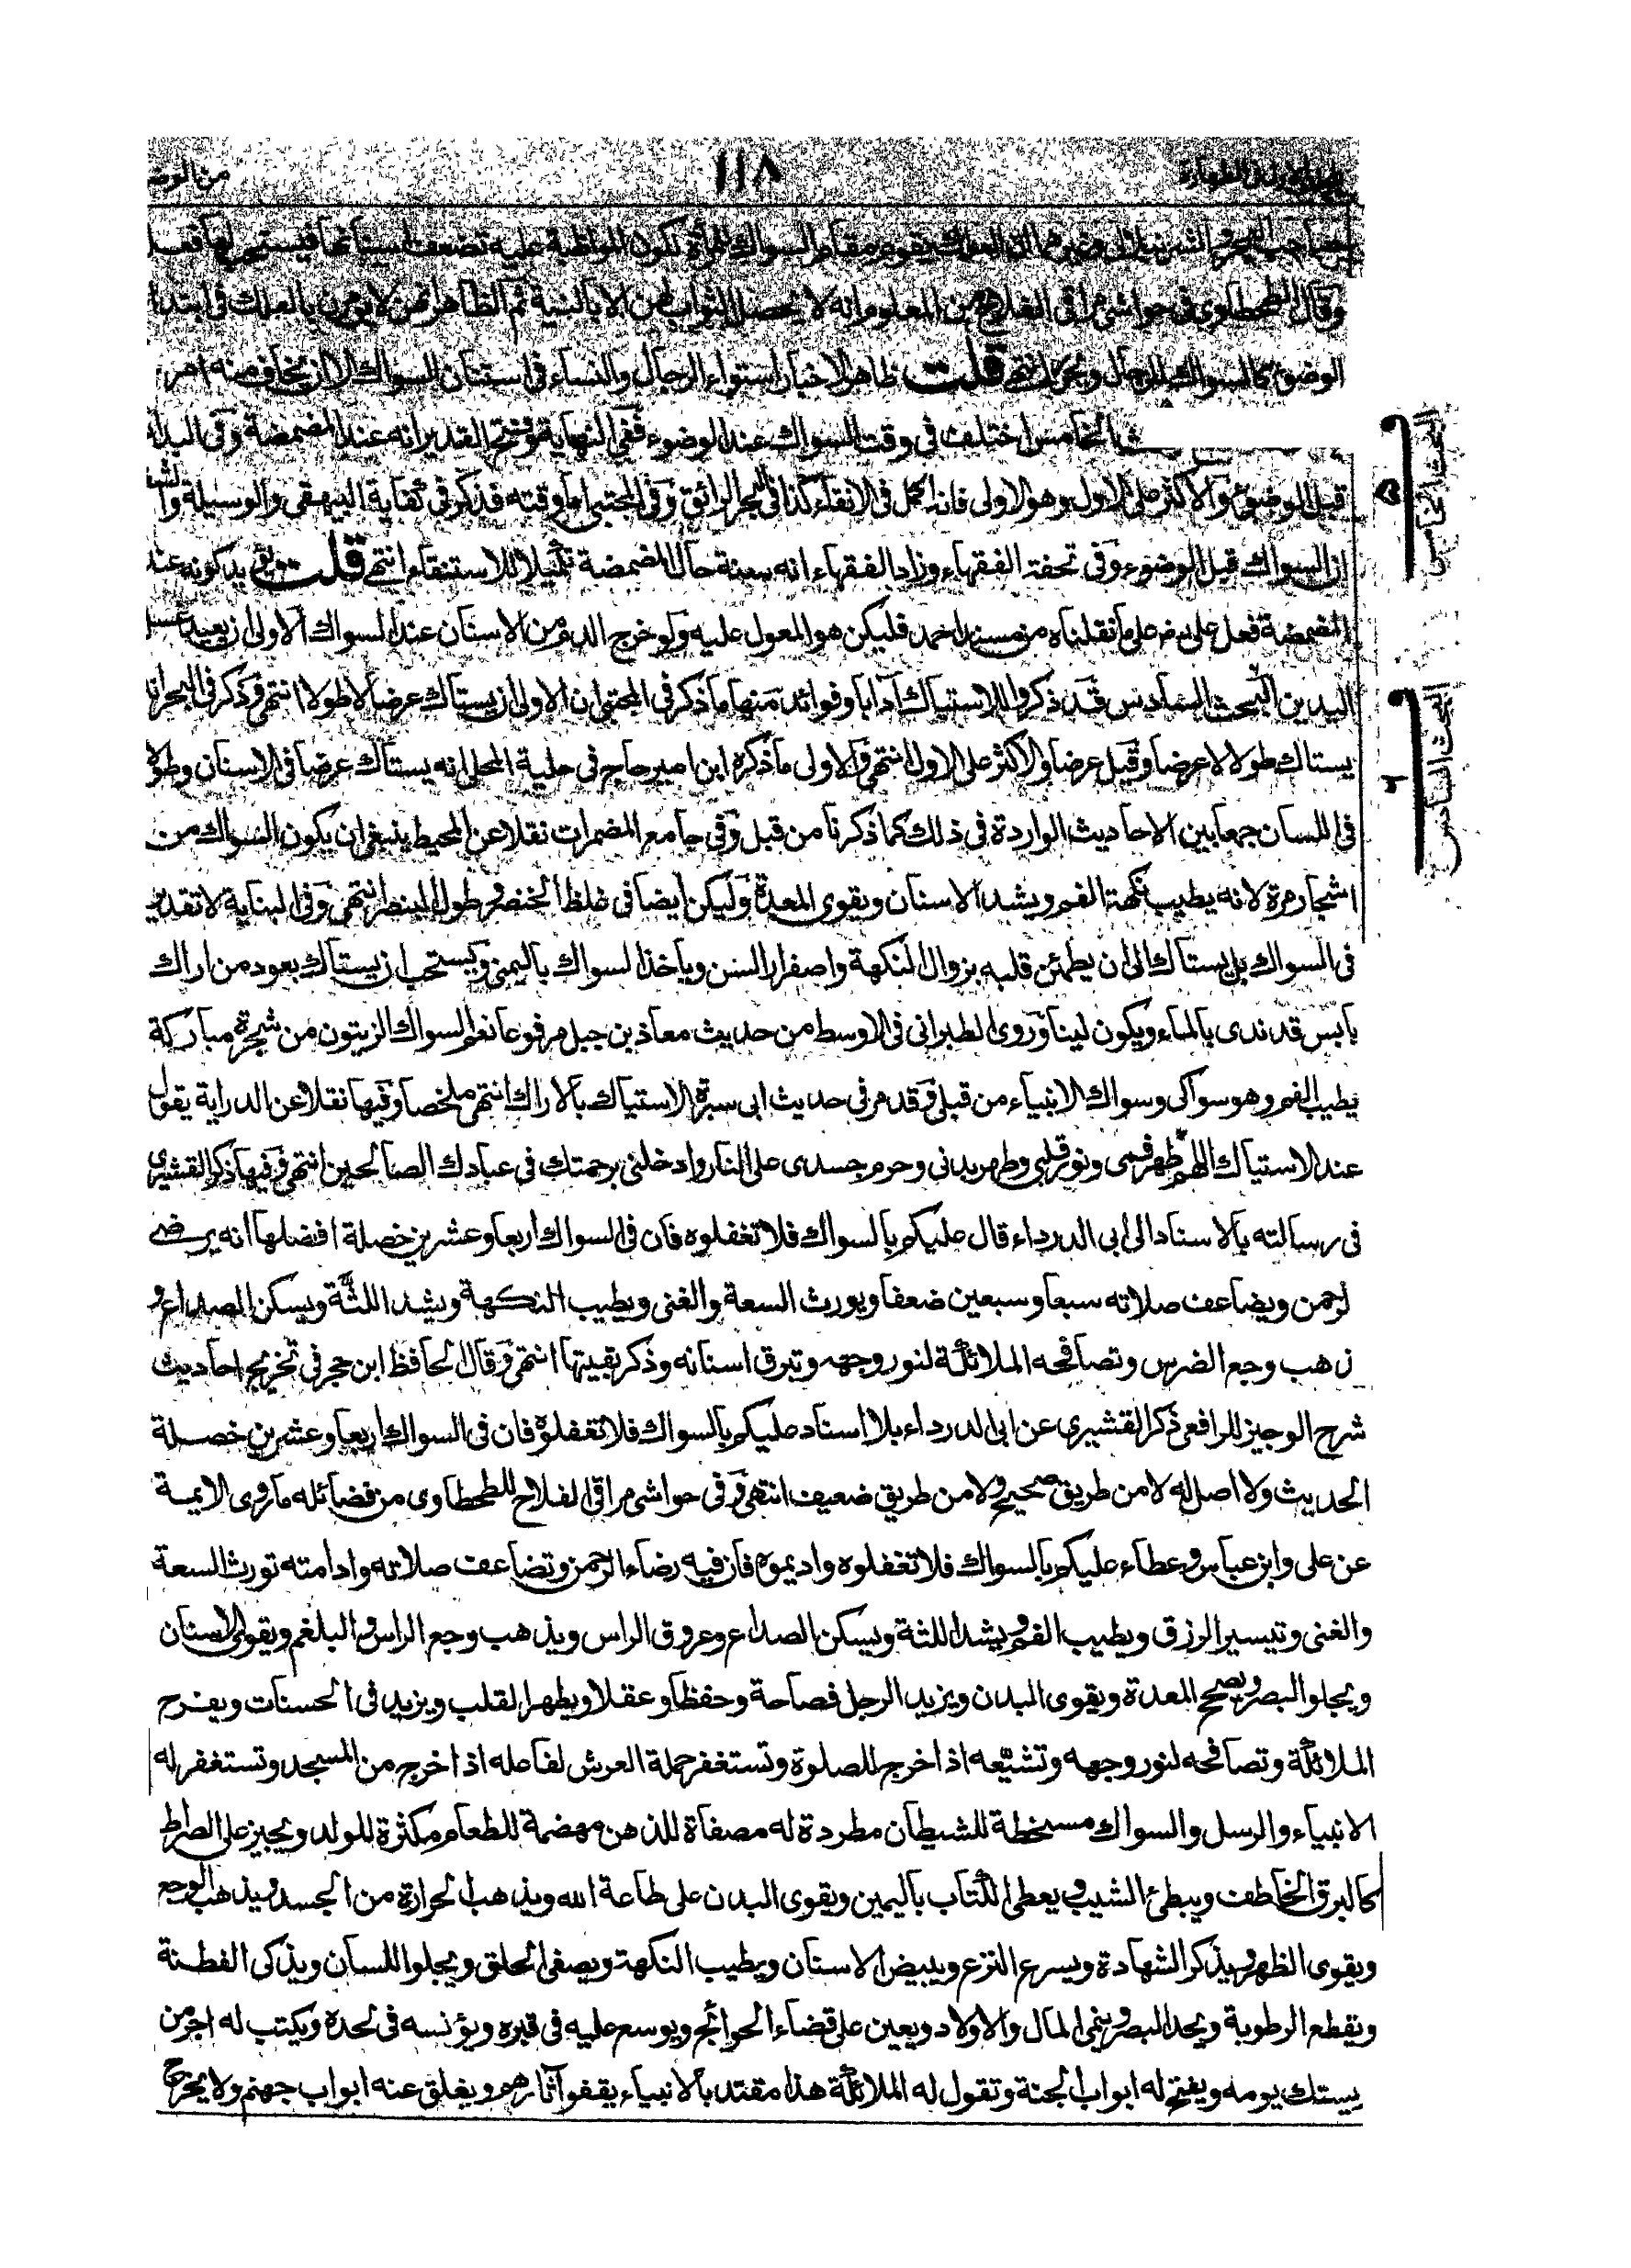 ١١٨
صاحب البحر والشرنبلالى وغيرهما ان العلك يقوم مقام السواك للمرأة لكون المواظبة عليه تضعف اسنانها فيستحب لها فعله
وقال الطحطاوى فى حواشى مراقى الفلاح من المعلوم انه لا يحصل الثواب لهن الا بالنية ثم الظاهر انهن لا يؤمرن بالعلك فى ابتداء
الوضوء كالسواك للرجال ويحرر انتهى قلت ظاهر الاخبار استواء الرجال والنساء فى استنان السواك الا ان يخاف منه امر
الخامس اختلف فى وقت السواك عند الوضوء ففى النهاية وفتح القدير انه عند المضمضة وفى البدائع
قبل الوضوء والاكثر على الاول وهو الاولى فانه اكمل فى الانقاء كذا فى البحر الرائق وفى المجتبى اما وقته فذكر فى كفاية البيهقى والوسيلة والشفا
ان السواك قبل الوضوء وفى تحفة الفقهاء وزاد الفقهاء انه سنة حال المضمضة تكميلا للاستنقاء انتهى قلت ويؤيد كونه عند
المضمضة فعل على رضـ على ما نقلناه من مسند احمد فليكن هو المعول عليه ولو خرج الدم من الاسنان عند السواك الاولى ان يعيد غسل
اليدين البحث السادس قد ذكروا للاستياك آدابا وفوائد منها ما ذكر فى المجتبى ان الاولى ان يستاك عرضا لا طولا انتهى وذكر فى البحر انه
يستاك طولا لا عرضا وقيل عرضا والاكثر على الاول انتهى والاولى ما ذكره ابن امير حاج فى حلية المحلى انه يستاك عرضا فى الاسنان وطولا
فى اللسان جمعا بين الاحاديث الواردة فى ذلك كما ذكرنا من قبل وفى جامع المضمرات نقلا عن المحيط ينبغى ان يكون السواك من
اشجار مرة لانه يطيب نكهة الفم ويشد الاسنان ويقوى المعدة وليكن ايضا فى غلظ الخنصر وطول البنصر انتهى وفى البناية لا تقدير
فى السواك بل يستاك الى ان يطمئن قلبه بزوال النكهة واصفرار السنن وياخذ السواك باليمنى ويستحب ان يستاك بعود من اراك
يابس قد ندى بالماء ويكون لينا وروى الطبرانى فى الاوسط من حديث معاذ بن جبل مرفوعا نعم السواك الزيتون من شجرة مباركة
يطيب الفم وهو سواكى وسواك الانبياء من قبلى وقد مر فى حديث ابى سبرة الاستياك بالاراك انتهى ملخصا وفيها نقلا عن الدراية يقول
عند الاستياك اللهم طهر فمى ونور قلبى وطهر بدنى وحرم جسدى على النار وادخلنى برحمتك فى عبادك الصالحين انتهى وفيها ذكر القشيرى
فى رسالته بالاسناد الى ابى الدرداء قال عليكم بالسواك فلا تغفلوه فان فى السواك اربعا وعشرين خصلة افضلها انه يرضى
لرحمن ويضاعف صلاته سبعا وسبعين ضعفا ويورث السعة والغنى ويطيب النكهة ويشد اللثة ويسكن الصداع و
ذهب وجع الضرس وتصافحه الملائكة لنور وجهه وتبرق اسنانه وذكر بقيتها انتهى وقال الحافظ ابن حجر فى تخريج احاديث
شرح الوجيز للرافعى ذكر القشيرى عن ابى الدرداء بلا اسناد عليكم بالسواك فلا تغفلوه فان فى السواك اربعا وعشرين خصلة
الحديث ولا اصل له لا من طريق صحيح ولا من طريق ضعيف انتهى وفى حواشى مراقى الفلاح للطحطاوى من فضائله ما روى الايمة
عن على وابن عباس وعطاء عليكم بالسواك فلا تغفلوه واديموه فان فيه رضاء الرحمن وتضاعف صلاته وادامته تورث السعة
والغنى وتيسير الرزق ويطيب الفم ويشد اللثة ويسكن الصداع وعروق الراس ويذهب وجع الراس والبلغم ويقوى الاسنان
ويجلو البصر ويصحح المعدة ويقوى البدن ويزيد الرجل فصاحة وحفظا وعقلا ويطهر القلب ويزيد فى الحسنات ويفرح
الملائكة وتصافحه لنور وجهه وتشيعه اذا خرج للصلوة وتستغفر حملة العرش لفاعله اذا خرج من المسجد وتستغفر له
الانبياء والرسل والسواك مسخطة للشيطان مطردة له مصفاة للذهن مهضمة للطعام مكثرة للولد ويجيز على الصراط
كالبرق الخاطف ويبطئ الشيب ويعطى الكتاب باليمين ويقوى البدن على طاعة الله ويذهب الحرارة من الجسد ويذهب الوجع
ويقوى الظهر ويذكر الشهادة ويسرع النزع ويبيض الاسنان ويطيب النكهة ويصفى الحلق ويجلو اللسان ويذكى الفطنة
ويقطع الرطوبة ويحد البصر وينمى المال والاولاد ويعين على قضاء الحوائج ويوسع عليه فى قبره ويؤنسه فى لحده ويكتب له اجر من
يستك يومه ويفتح له ابواب الجنة وتقول له الملائكة هذا مقتد بالانبياء يقفو آثارهم ويغلق عنه ابواب جهنم ولا يخرج
البحث الخامس
البحث السادس